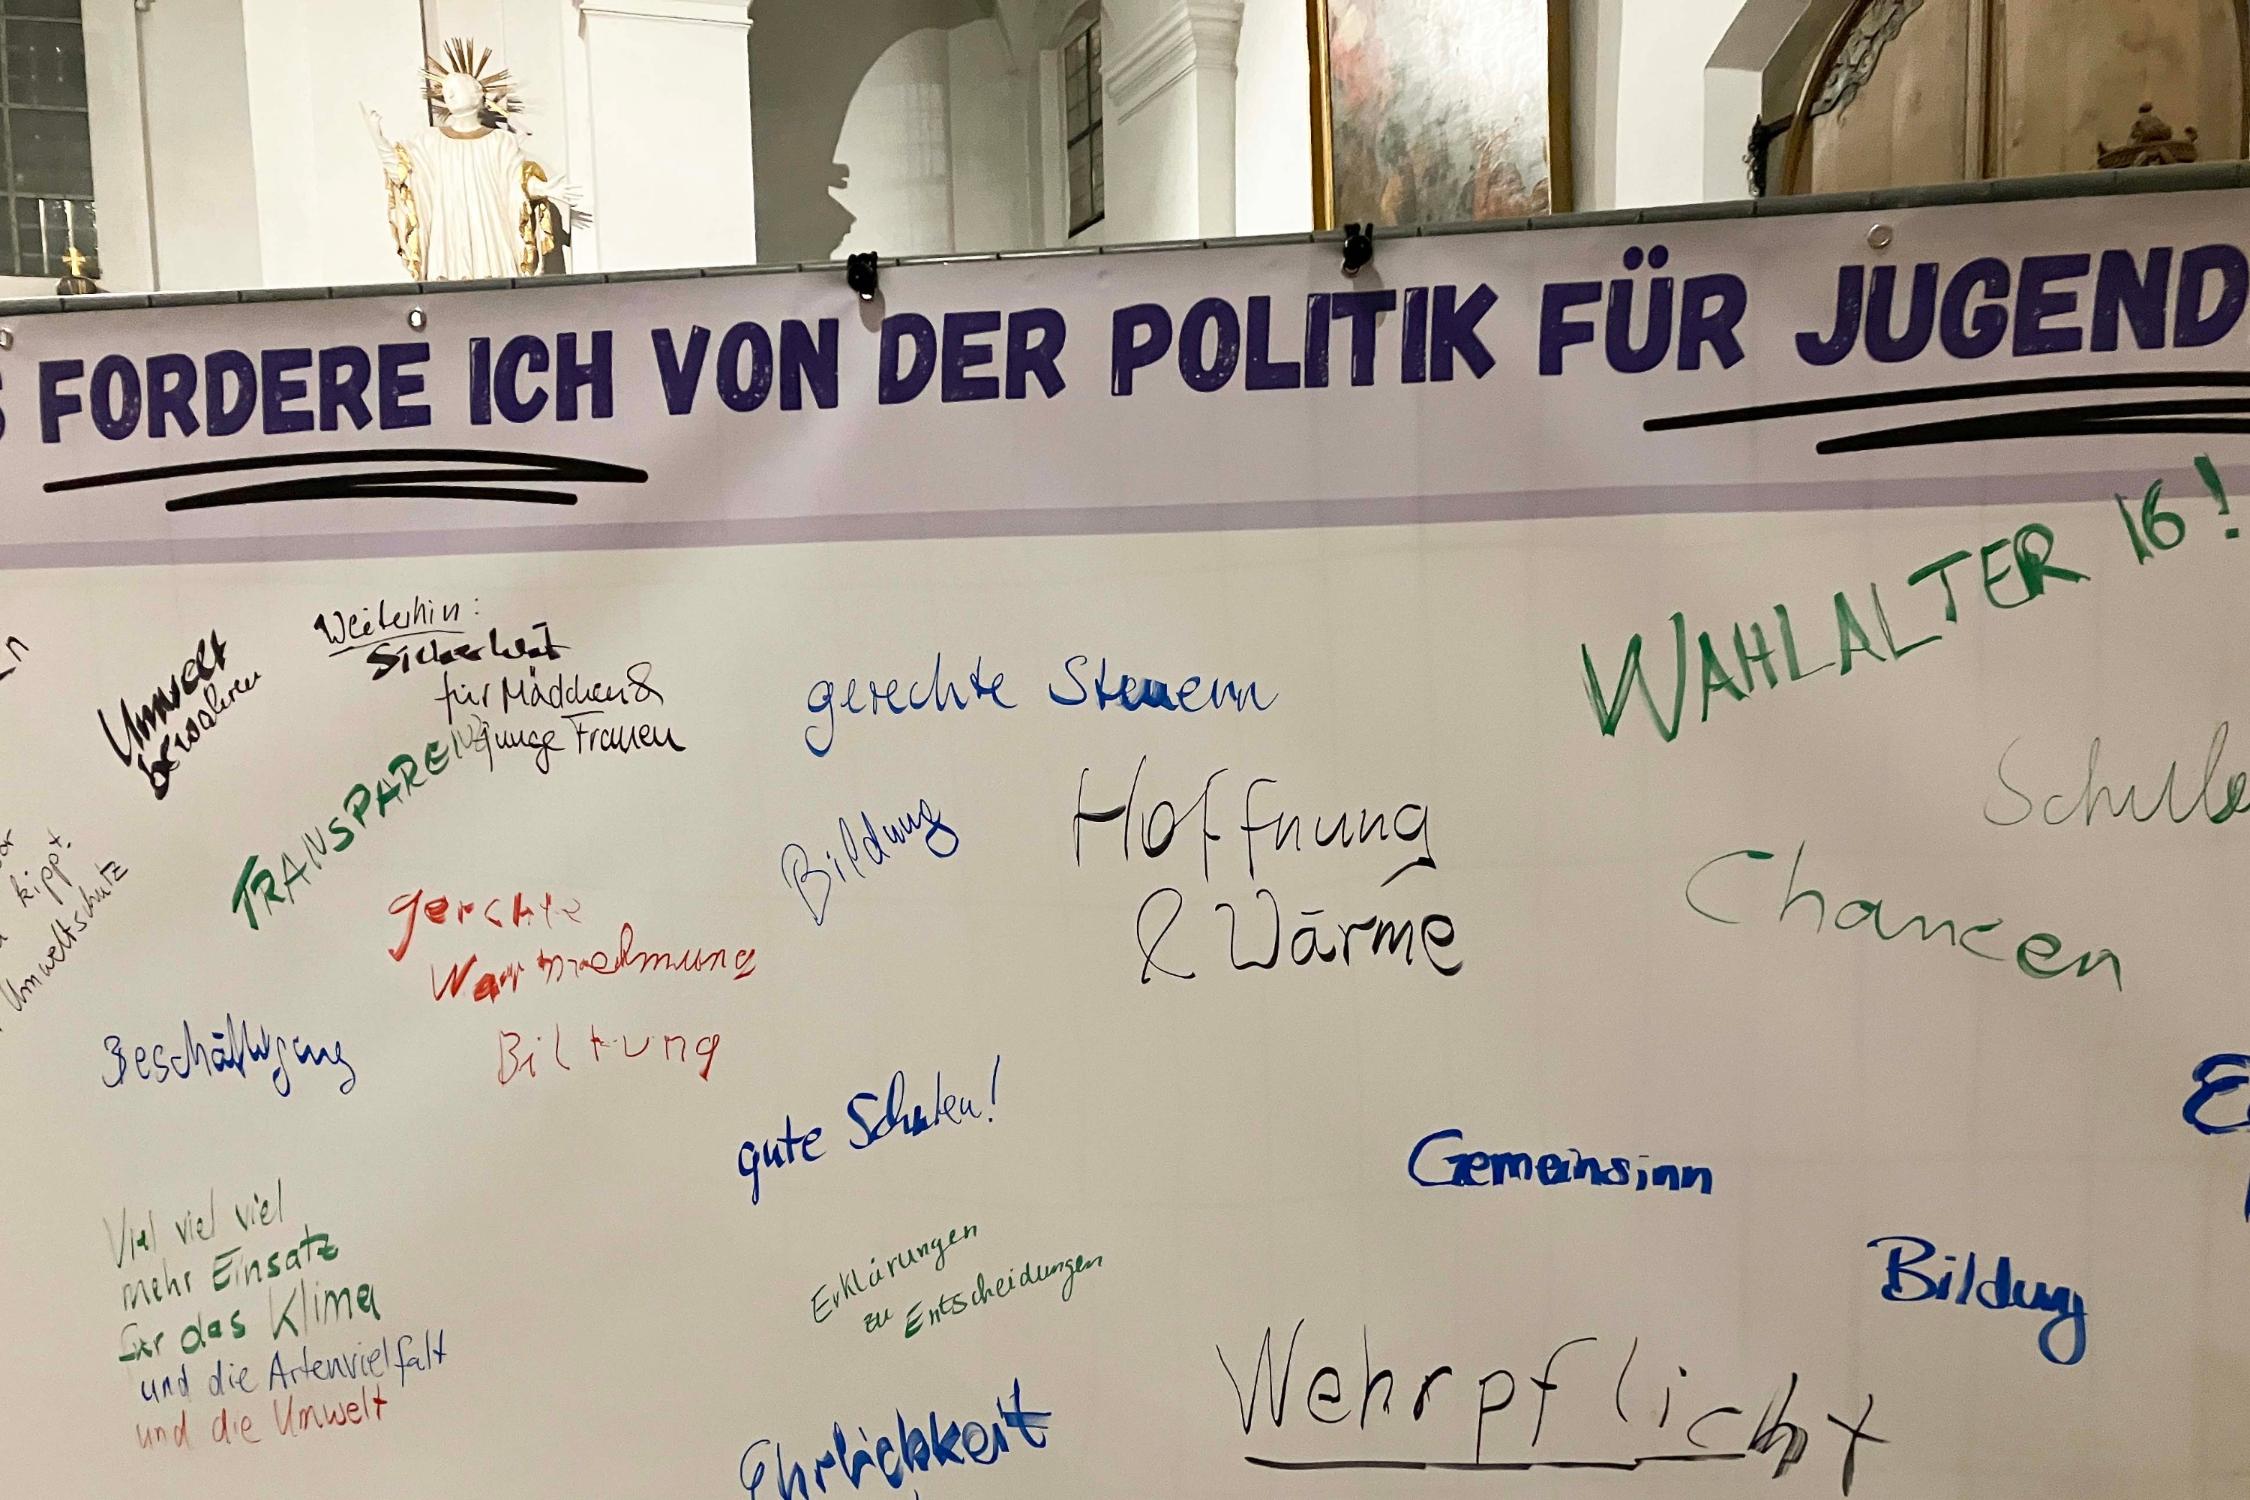 FORDERE ICH VON DER POLITIK FÜR JUGEND
WAHLALTER 16!
Weiterhin:
Sicherheit
für Mädchen &
junge Frauen
Umwelt
bewahren
TRANSPARENZ
gerechte Steuern
Bildung
Hoffnung
& Wärme
Chancen
kippt.
Umweltschutz
gerchte
Warnnehmung
Biltung
Beschäftigung
gute Schulen!
Gemeinsinn
Bildung
Viel viel viel
mehr Einsatz
für das Klima
und die Artenvielfalt
und die Umwelt
Erklärungen
zu Entscheidungen
Wehrpflicht
Ehrlichkeit